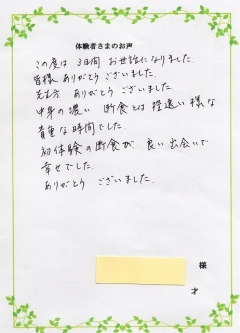 体験者さまのお声
この度は 3日間 お世話になりました。
皆様 ありがとう ございました。
ありがとう ございました。
中身の濃い 断食とは 程遠い 様な
貴重な時間でした。
初体験の断食が、良い出会いで
幸せでした。
ありがとう ございました。
様
才